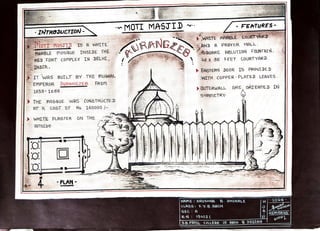 - MOTI MASJID -
- INTRODUCTION -
MOTI MASJID IS A WHITE
MARBLE MOSQUE INSIDE THE
RED FORT COMPLEX IN DELHI,
INDIA.
IT WAS BUILT BY THE MUGHAL
EMPEROR AURANGZEB FROM
1659-1660
THE MOSQUE WAS CONSTRUCTED
AT A COST OF RS 160000/-
WHITE PLASTER ON THE
OUTSIDE
- PLAN -
AURANGZEB
- FEATURES -
WHITE MARBLE COURTYARD
AND A PRAYER HALL.
SQUARE ABLUTION FOUNTAIN.
40 X 35 FEET COURTYARD
EASTERN DOOR IS PROVIDED
WITH COPPER-PLATED LEAVES
OUTERWALL ARE ORIENTED IN
SYMMETRY
NAME :
CLASS :
SEC :
R.N :
SIGN
REMARKS
COLLEGE OF ARCH & DESIGN